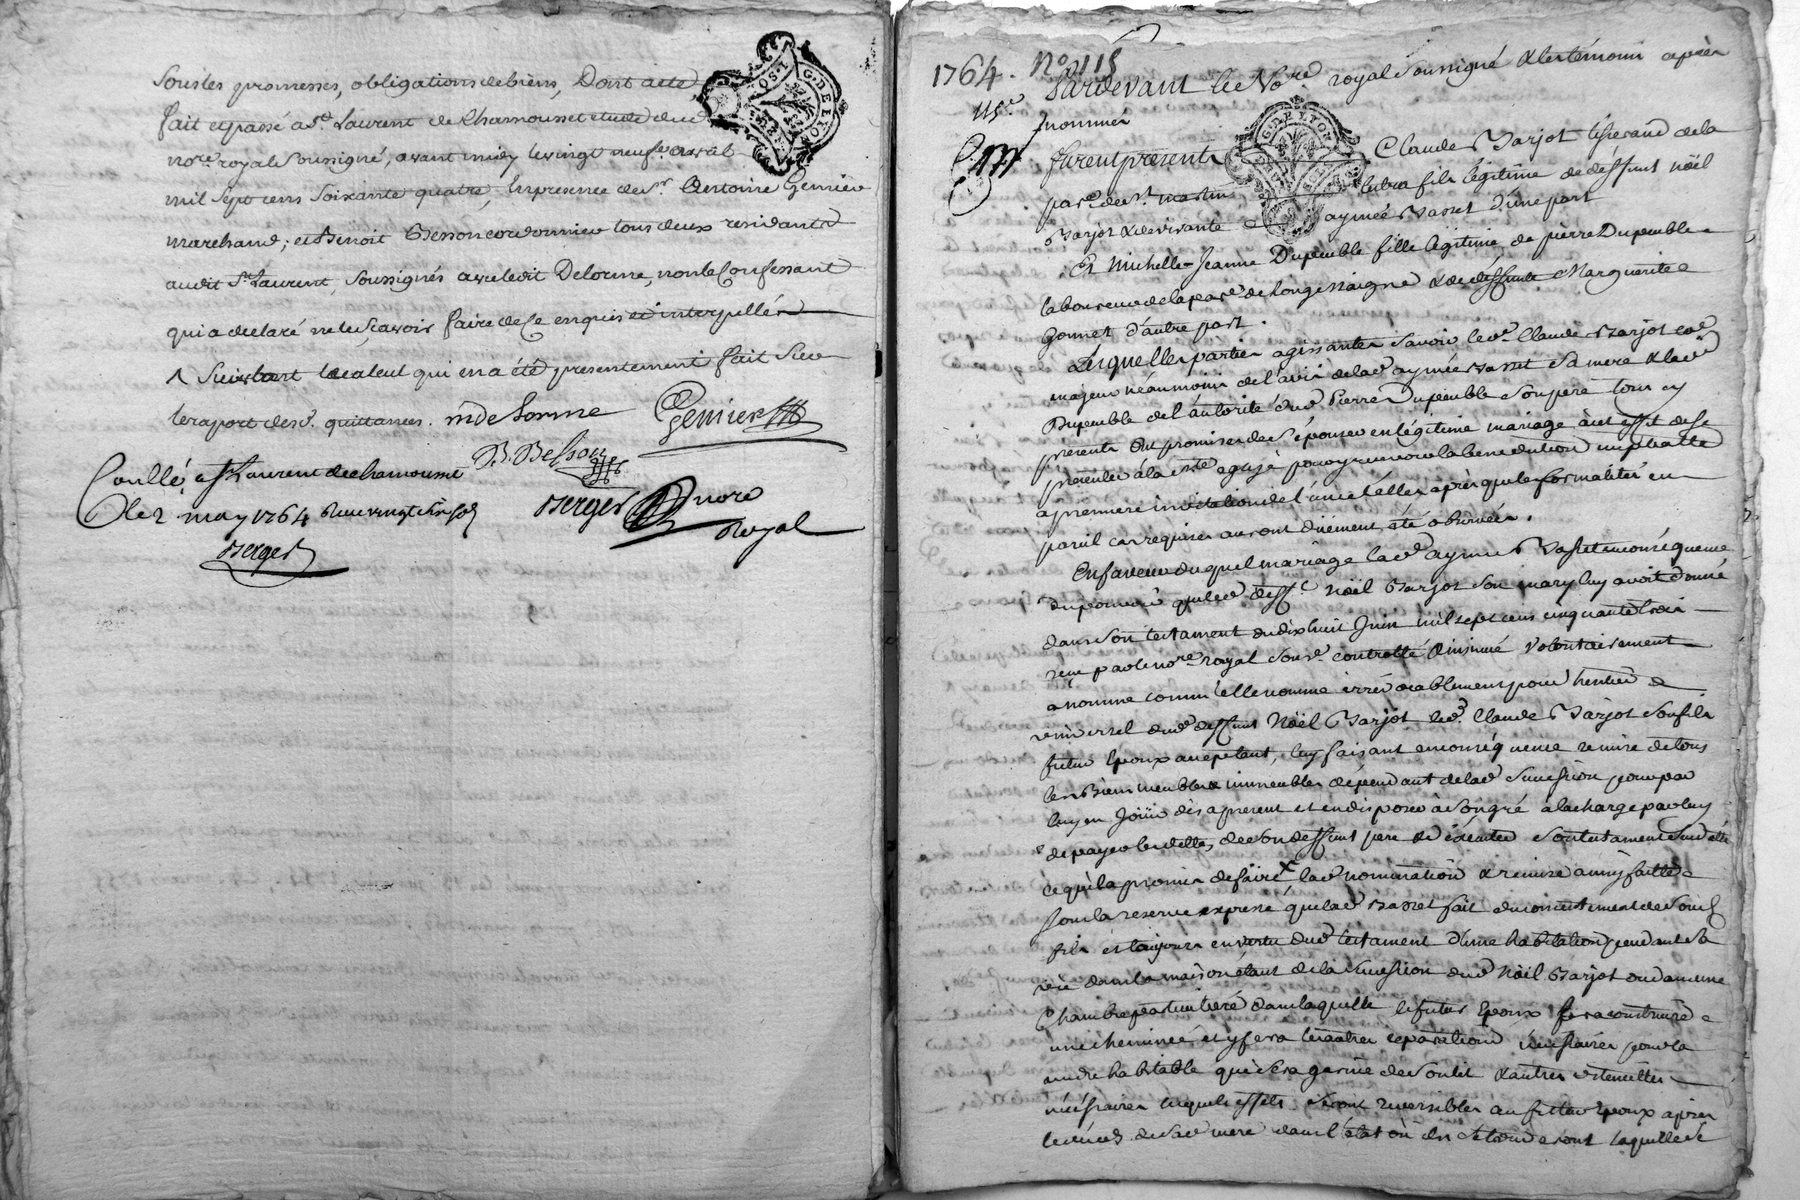 Sous les promesses, obligations de biens, Dont acte
fait et passé a St. Laurent de Chamousset etude dud.
nore. royal soussigné, avant midy le vingt neufe. avril
mil sept cens soixante quatre, En presence de sr. Antoine Gemier
marchand; et Benoit Besson cordonnier tous deux residants
audit St. Laurent, soussignés avec ledit Delorme, non le Confessant
qui a declaré ne le sçavoir faire de ce enquis et interpellé
le calcul qui en a été presentement fait sur
le raport desd. quittances. m de Lorme Gemier
B. Besson
Conllé a St Laurent de chamousset
le 2 may 1764 Reçu vingt six sols
Berger
Berger nore
Royal
G. DE LYON
1764. No. 115
Pardevant le Nore. royal soussigné & les témoins après
nommés
furent présents Claude Barjot tisserand de la
parse. de St. martin fils légitime de déffunt nöël
Barjot & de vivante aymée Basset d'une part
Et Michelle-Jeanne Dupeuble fille légitime de pierre Dupeuble
laboureur de la parse. de Longessaigne & de deffunte Marguerite
Gonnet d'autre part.
Lesquelles parties agissantes sçavoir led. Claude Barjot
majeur néaumoins de l'avis de lad. aymée Basset sa mere & lad.
Dupeuble de l'autorité dud. Pierre Dupeuble son père tous cy
présents Ont promis de s'épouser en légitime mariage à cet effet de se
présenter à la ste église pour y recevoir la benediction nuptiale
a premiere invitation de l'un et de l'autre après que les formalités en
pareil cas requises auront duement été observées.
En faveur duquel mariage lad. aymée Basset en conséquence
du pouvoir que led. defft. Nöël Barjot son mary luy avoit donné
dans son testament du dix huit Juin mil sept cens cinquante trois
reçu par le nore. royal sousé. controllé & insinué volontairement
a nommé comm'elle nomme irrévocablement pour heritier
universel dud. deffunt Nöël Barjot led. Claude Barjot son fils
futur Epoux acceptant, luy faisant en conséquence remise de tous
les Biens meubles & immeubles dépendant de lad. succession pour par
luy en Joüir dès apresent et en disposer à son gré à la charge par luy
de payer les dettes de son deffunt pere & d'éxécuter son testament
ce qu'il a promis de faire lad. nomination & remise ainsy faitte
sous la reserve expresse que lad. Basset fait du consentement de son
fils et toujours en vertu dud. testament d'une habitation pendant sa
vie dans la maison étant de la succession dud. Nöël Barjot ou dans une
Chambre particuliere dans laquelle le futur Epoux fera construire
une cheminée et y fera les autres réparations nécéssaires pour la
rendre habitable qui sera garnie de son lit & autres ustenciles
nécéssaires lesquels effets seront reversibles au futur Epoux après
le décès de sad. mere dans l'état où ils se trouveront laquelle se